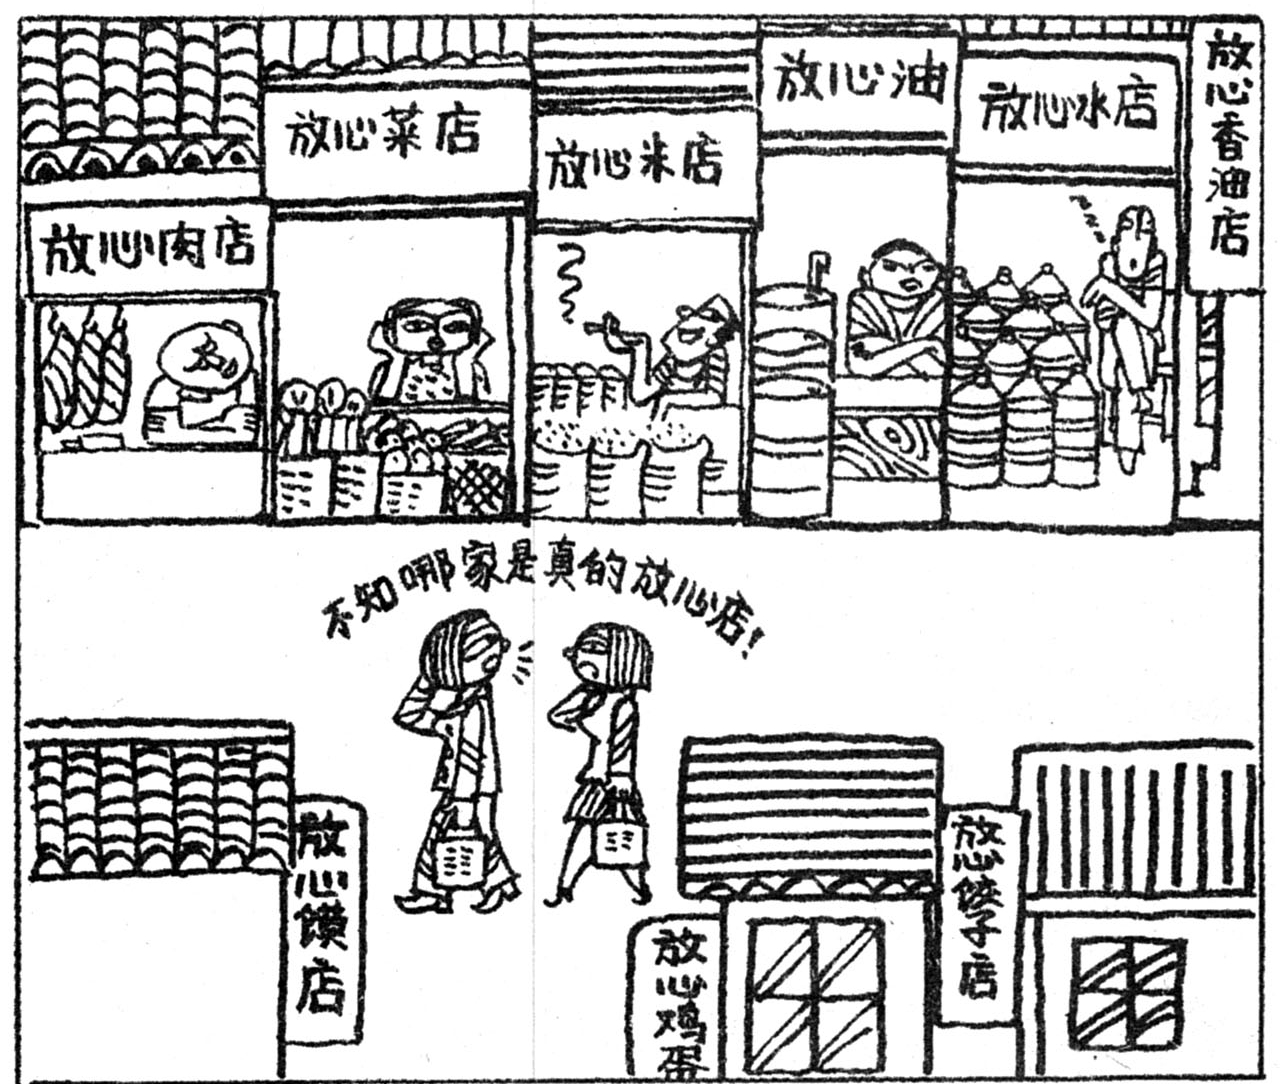 放心肉店
放心菜店
放心米店
放心油
放心水店
放心香油店
不知哪家是真的放心店!
放心馍店
放心鸡蛋
放心饺子店